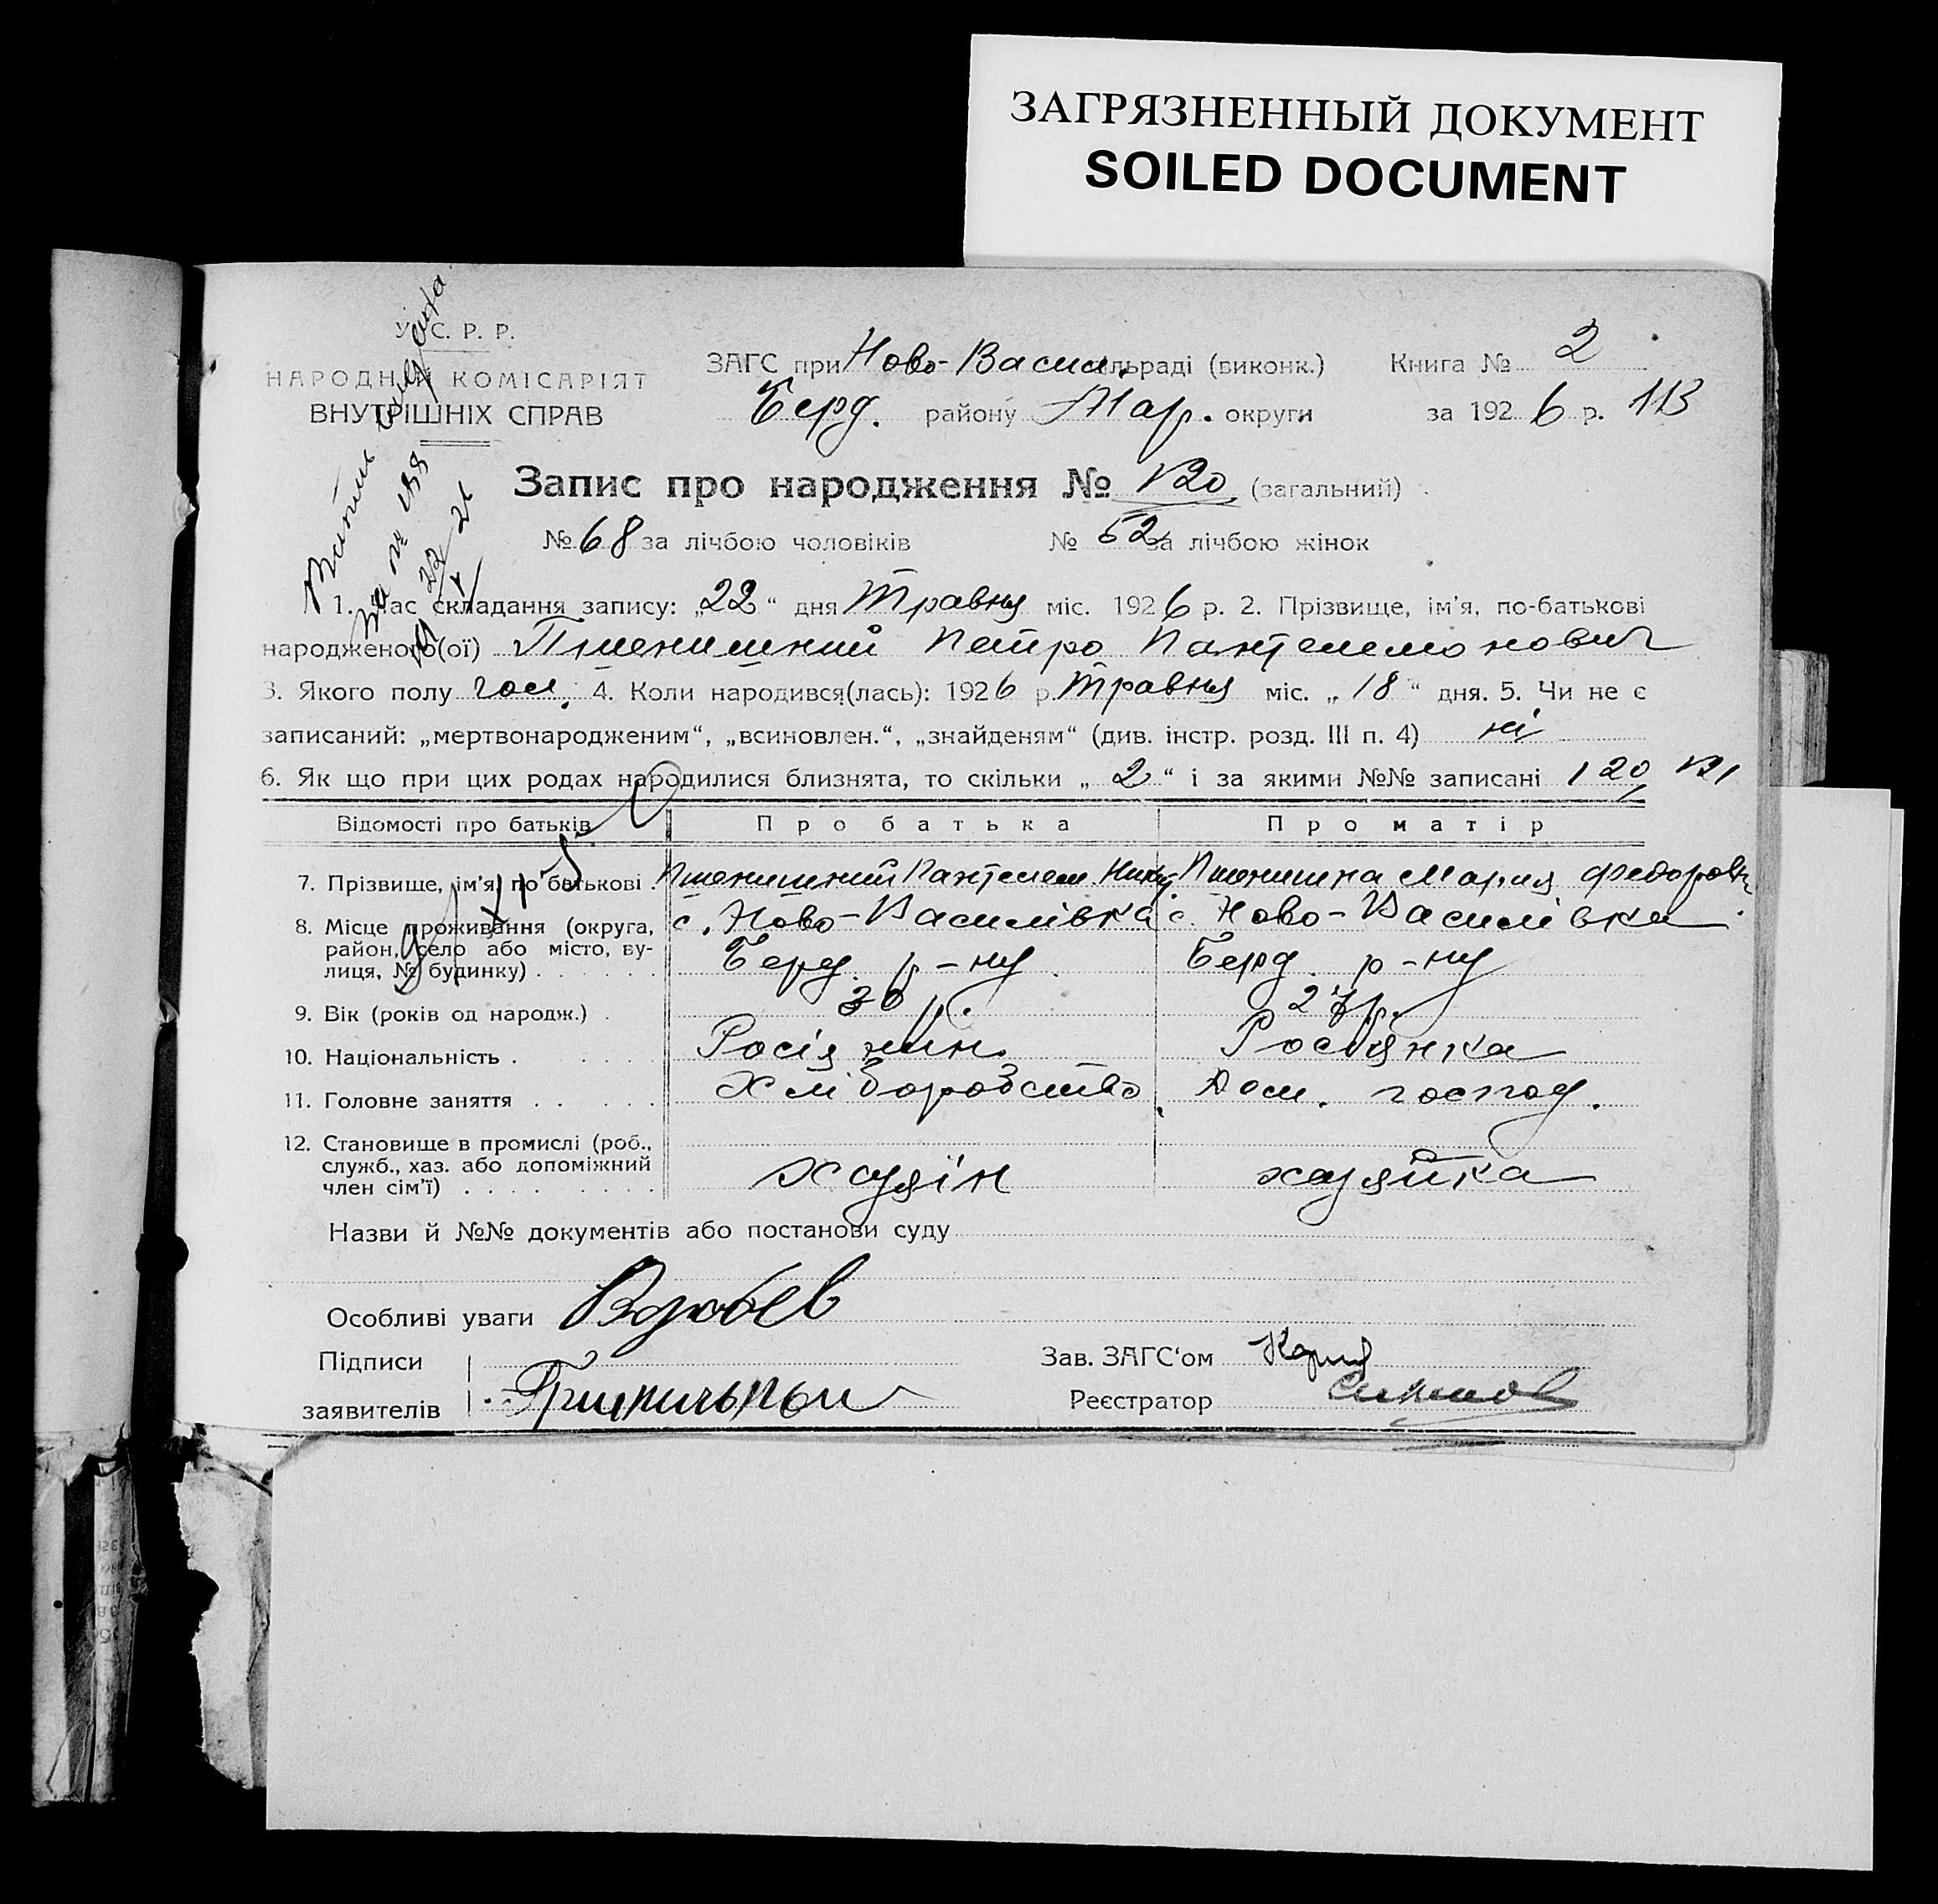 ЗАГРЯЗНЕННЫЙ ДОКУМЕНТ
SOILED DOCUMENT
У. С. Р. Р.
НАРОДНИЙ КОМІСАРІЯТ
ВНУТРІШНІХ СПРАВ
ЗАГС при Ново-Васил. сільраді (виконк.) Книга № 2
Берд. району Мар. округи за 1926 р. 113
Запис про народження № 120 (загальний)
№ 68 за лічбою чоловіків № 52 за лічбою жінок
1. Час складання запису: „22“ дня Травня міс. 1926 р. 2. Прізвище, ім'я, по-батькові
народженого(ої) Пшенишний Петро Пантелемонович
3. Якого полу чол. 4. Коли народився(лась): 1926 р. Травня міс. „18“ дня. 5. Чи не є
записаний: „мертвонародженим“, „всиновлен.“, „знайденям“ (див. інстр. розд. III п. 4) ні
6. Як що при цих родах народилися близнята, то скільки „2“ і за якими №№ записані 120 121
Відомості про батьків Про батька Про матір
7. Прізвище, ім'я, по батькові . Пшенишний Пантелем. Пшенишна Мария Федоровн
8. Місце проживання (округа, район, село або місто, вулиця, № будинку) . с. Ново-Василівка с. Ново-Василівка
Берд. р-ну Берд. р-ну
9. Вік (років од народж.) . 30 р. 27 р.
10. Національність . Росіянин Росіянка
11. Головне заняття . . Хліборобство Дом. господ.
12. Становище в промислі (роб., служб., хаз. або допоміжний член сім'ї) . хазяїн хазяйка
Назви й №№ документів або постанови суду
Особливі уваги
Підписи
Зав. ЗАГС'ом
заявителів
Реєстратор